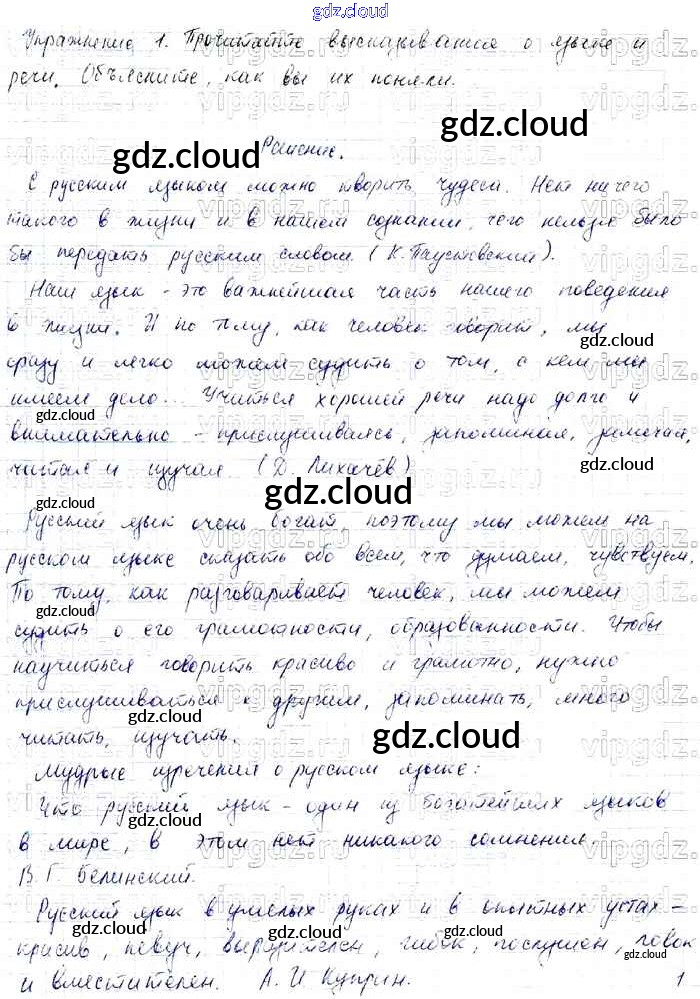 gdz.cloud
Упражнение 1. Прочитайте высказывания о языке и
речи. Объясните, как вы их поняли.
Решение.
С русским языком можно творить чудеса. Нет ничего
такого в жизни и в нашем сознании, чего нельзя было
бы передать русским словом (К. Паустовский).
Наш язык - это важнейшая часть нашего поведения
в жизни. И по тому, как человек говорит, мы
сразу и легко можем судить о том, с кем мы
имеем дело... Учиться хорошей речи надо долго и
внимательно - прислушиваясь, запоминая, замечая,
читая и изучая (Д. Лихачёв)
Русский язык очень богат, поэтому мы можем на
русском языке сказать обо всем, что думаем, чувствуем.
По тому, как разговаривает человек, мы можем
судить о его грамотности, образованности. Чтобы
научиться говорить красиво и грамотно, нужно
прислушиваться к другим, запоминать, много
читать, изучать.
Мудрые изречения о русском языке:
Что русский язык - один из богатейших языков
в мире, в этом нет никакого сомнения.
В. Г. Белинский.
Русский язык в умелых руках и в опытных устах -
красив, певуч, выразителен, гибок, послушен, ловок
и вместителен. А. И Куприн.
1